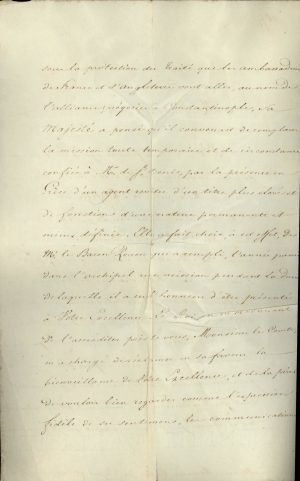 sous la protection du Traité que les ambassadeurs
de france et d'angleterre sont allés, au nom de
l'alliance, négocier à Constantinople, Sa
Majesté a pensé qu'il convenait de remplacer
la mission toute temporaire et de circonstance
confiée à Mr. de St. Denis, par la présence en
Grèce d'un agent revêtu d'un titre plus élevé et
de fonctions d'une nature permanente et
mieux définie. Elle a fait choix à cet effet, de
Mr. le Baron Rouen qui a rempli, l'année
dans l'archipel une mission pendant la durée
de laquelle il a eu l'honneur d'être présenté
à Votre Excellence. Le Roi, en
de l'accréditer près de vous, Monsieur le Comte
m'a chargé de réclamer en sa faveur la
bienveillance de Votre Excellence, et de la prier
de vouloir bien regarder comme l'expression
fidèle de ses sentimens, les communications